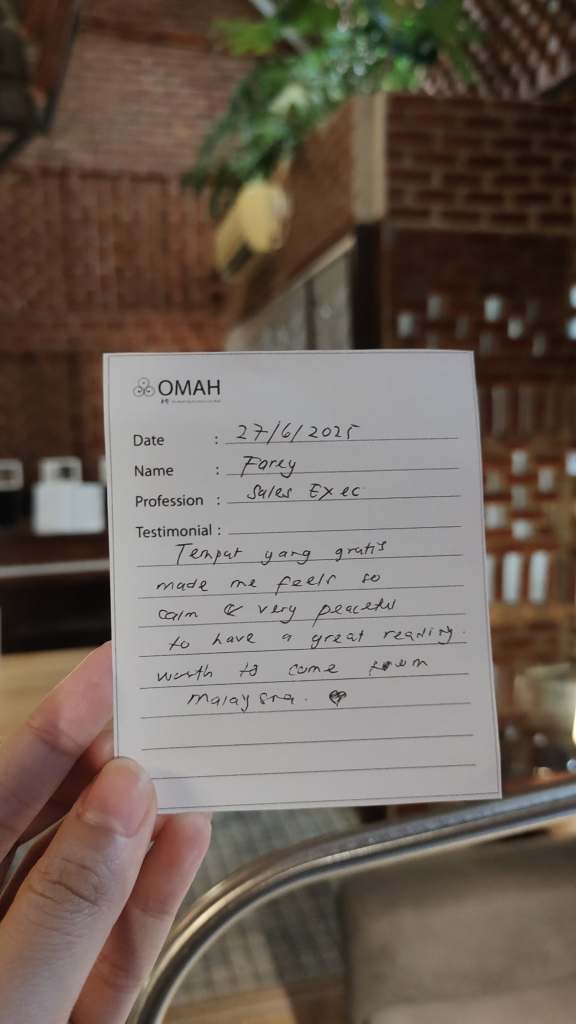 OMAH
Date : 27/6/2025
Name : Farey
Profession : Sales Exec
Testimonial :
Tempat yang gratis
made me feels so
calm & very peaceful
to have a great reading.
worth to come from
Malaysia.